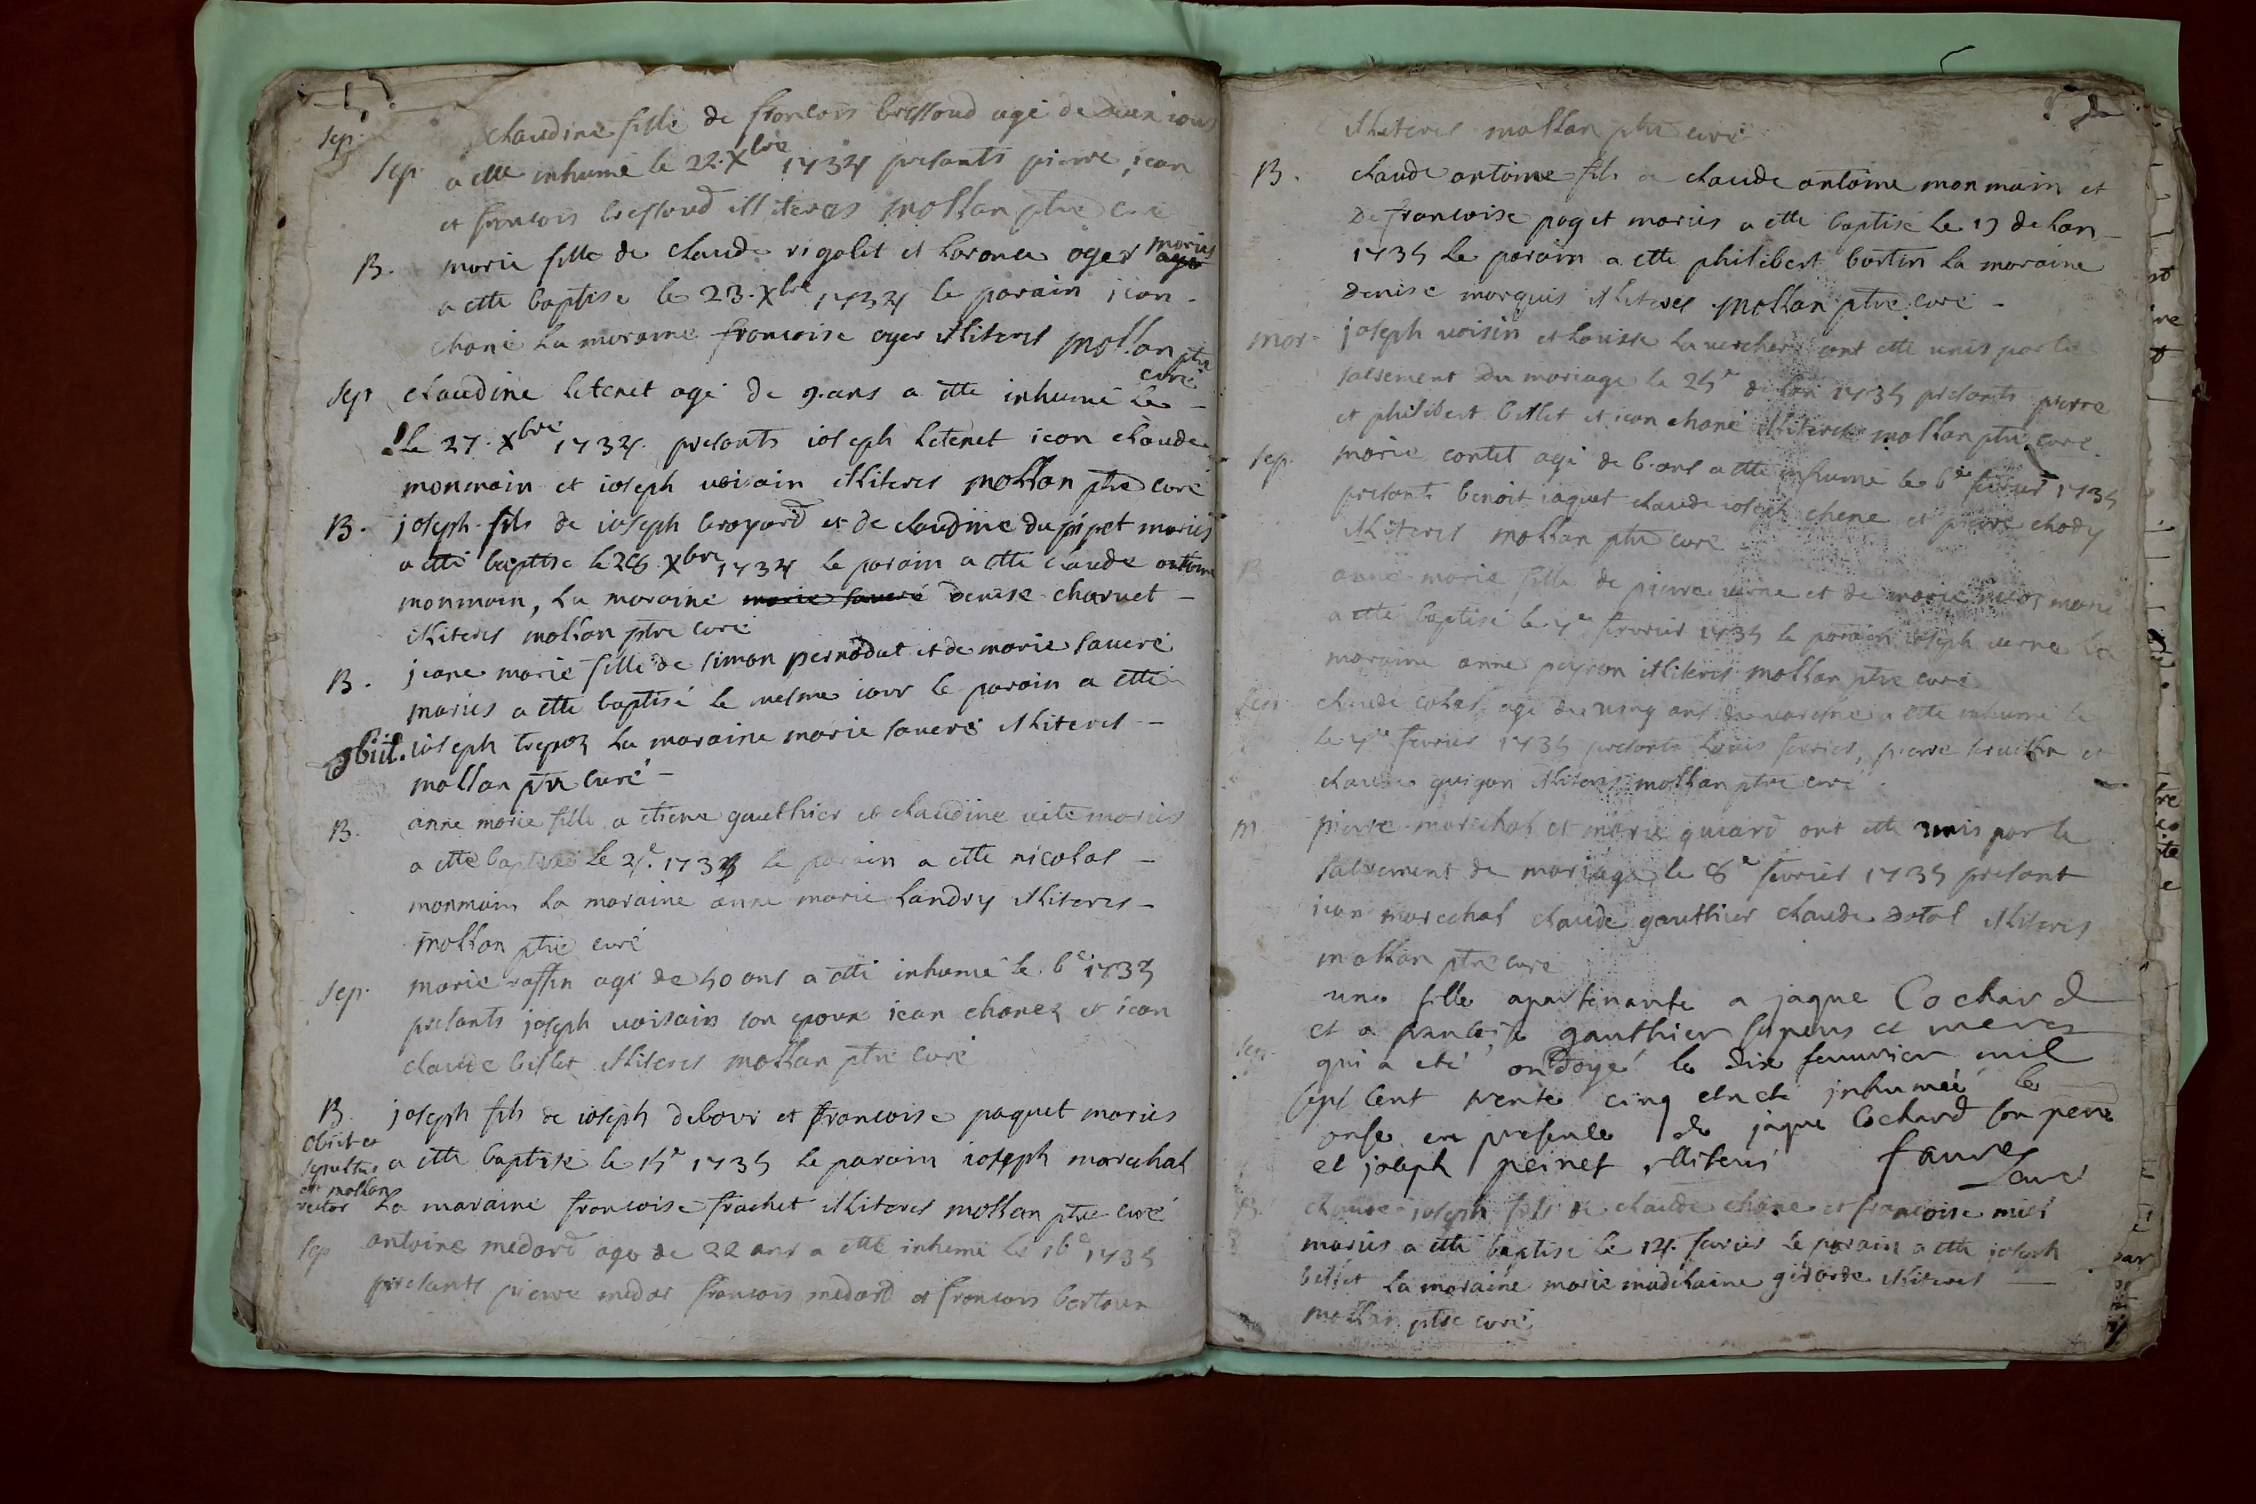 Sep. claudine fille de francois bressoud agé de deux iours
Sep. a ette inhumé le 22. Xbre 1734 presants pierre, iean
et francois bressoud illiteres mollan ptre curé
B. marie fille de claude rigolet et oger maries
a ette baptisé le 23. Xbre 1734 le parain iean
chané la maraine francoise oger illiteres mollan ptre
curé
Sep claudine letenet agé de 9. ans a ette inhumé le
le 27. Xbre 1734. presants ioseph letenet iean claude
monmain et ioseph voisain illiteres mollan ptre curé
B. joseph fils de ioseph broyard et de claudine du pipet maries
a etté baptisé le 28 Xbre 1734 le parain a ette claude antoine
monmain, la maraine denise charvet
illiteres mollan ptre curé
B. jeane marie fille de simon pernodat et de marie saveré
maries a ette baptisé le mesme iour le parain a ette
obiit. ioseph trepoz la maraine marie saveré illiteres
mollan ptre curé
B. anne marie fille a etiene gauthier et claudine vite maries
a ette baptisée le 4e. 1735 le parain a ette nicolas
monmain la maraine anne marie landry illiteres
mollan ptre curé
Sep. marie raffin agé de 50 ans a etti inhumé le 6e 1735
presants joseph voisain son epoux iean chanez et iean
claude billet illiteres mollan ptre curé
B. joseph fils de ioseph debour et francoise paquet maries
obiit et
sepultus a ette baptisé le 15e 1735 le parain ioseph marechal
est mollan
rector la maraine francoise frachet illiteres mollan ptre curé
Sep antoine medard age de 22 ans a etté inhumé le 16e 1735
presants pierre medar francois medard et francois
illiteres mollan ptre curé
B. claude antoine fils a claude antoine monmain et
de francoise poget maries a ette baptisé le 19 de lan
1735 le parain a ette philibert bertin la maraine
denise marquis illiteres mollan ptre curé
mar. joseph voisin et louisse la vercher ont etté unis par le
sacrement du mariage le 25e de lan 1735 presants pierre
et philibert billet et iean chané illiteres mollan ptre curé
Sep. marie contet agé de 6. ans a ette inhumé le 6e fevrier 1735
presants benoit iaquet claude ioseph chene et pierre chody
illiteres mollan ptre curé
B anne marie fille de pierre verne et de marie maries
a ette baptisé le 7e fevrier 1735 le parain ioseph verne la
maraine anne peyron illiteres mollan ptre curé
Sep. claude colas agé de ving ans de a ette inhumé le
le 7e fevrier 1735 presants louis fevrier, pierre et
claude guigon illiteres mollan ptre curé
m pierre marechal et marie guiard ont ette unis par le
sacrement de mariage le 8e fevrier 1735 presant
iean marechal claude gauthier claude datal illiteres
mollan ptre curé
une fille apartenante a jaque Cochard
et a gauthier ses peres et meres
Sep. qui a eté ondoyé le dix feuvrier mil
sept cent trente cinq et inhumée le
onse en presence de jaque Cochard son pere
et joseph peinet illiteré favre
curé
B. claude ioseph fils de claude chane et francoise
maries a etté baptisé le 14. fevrier le parain a ette ioseph
billet la maraine marie madelaine girarde illiteres
mollan ptre curé